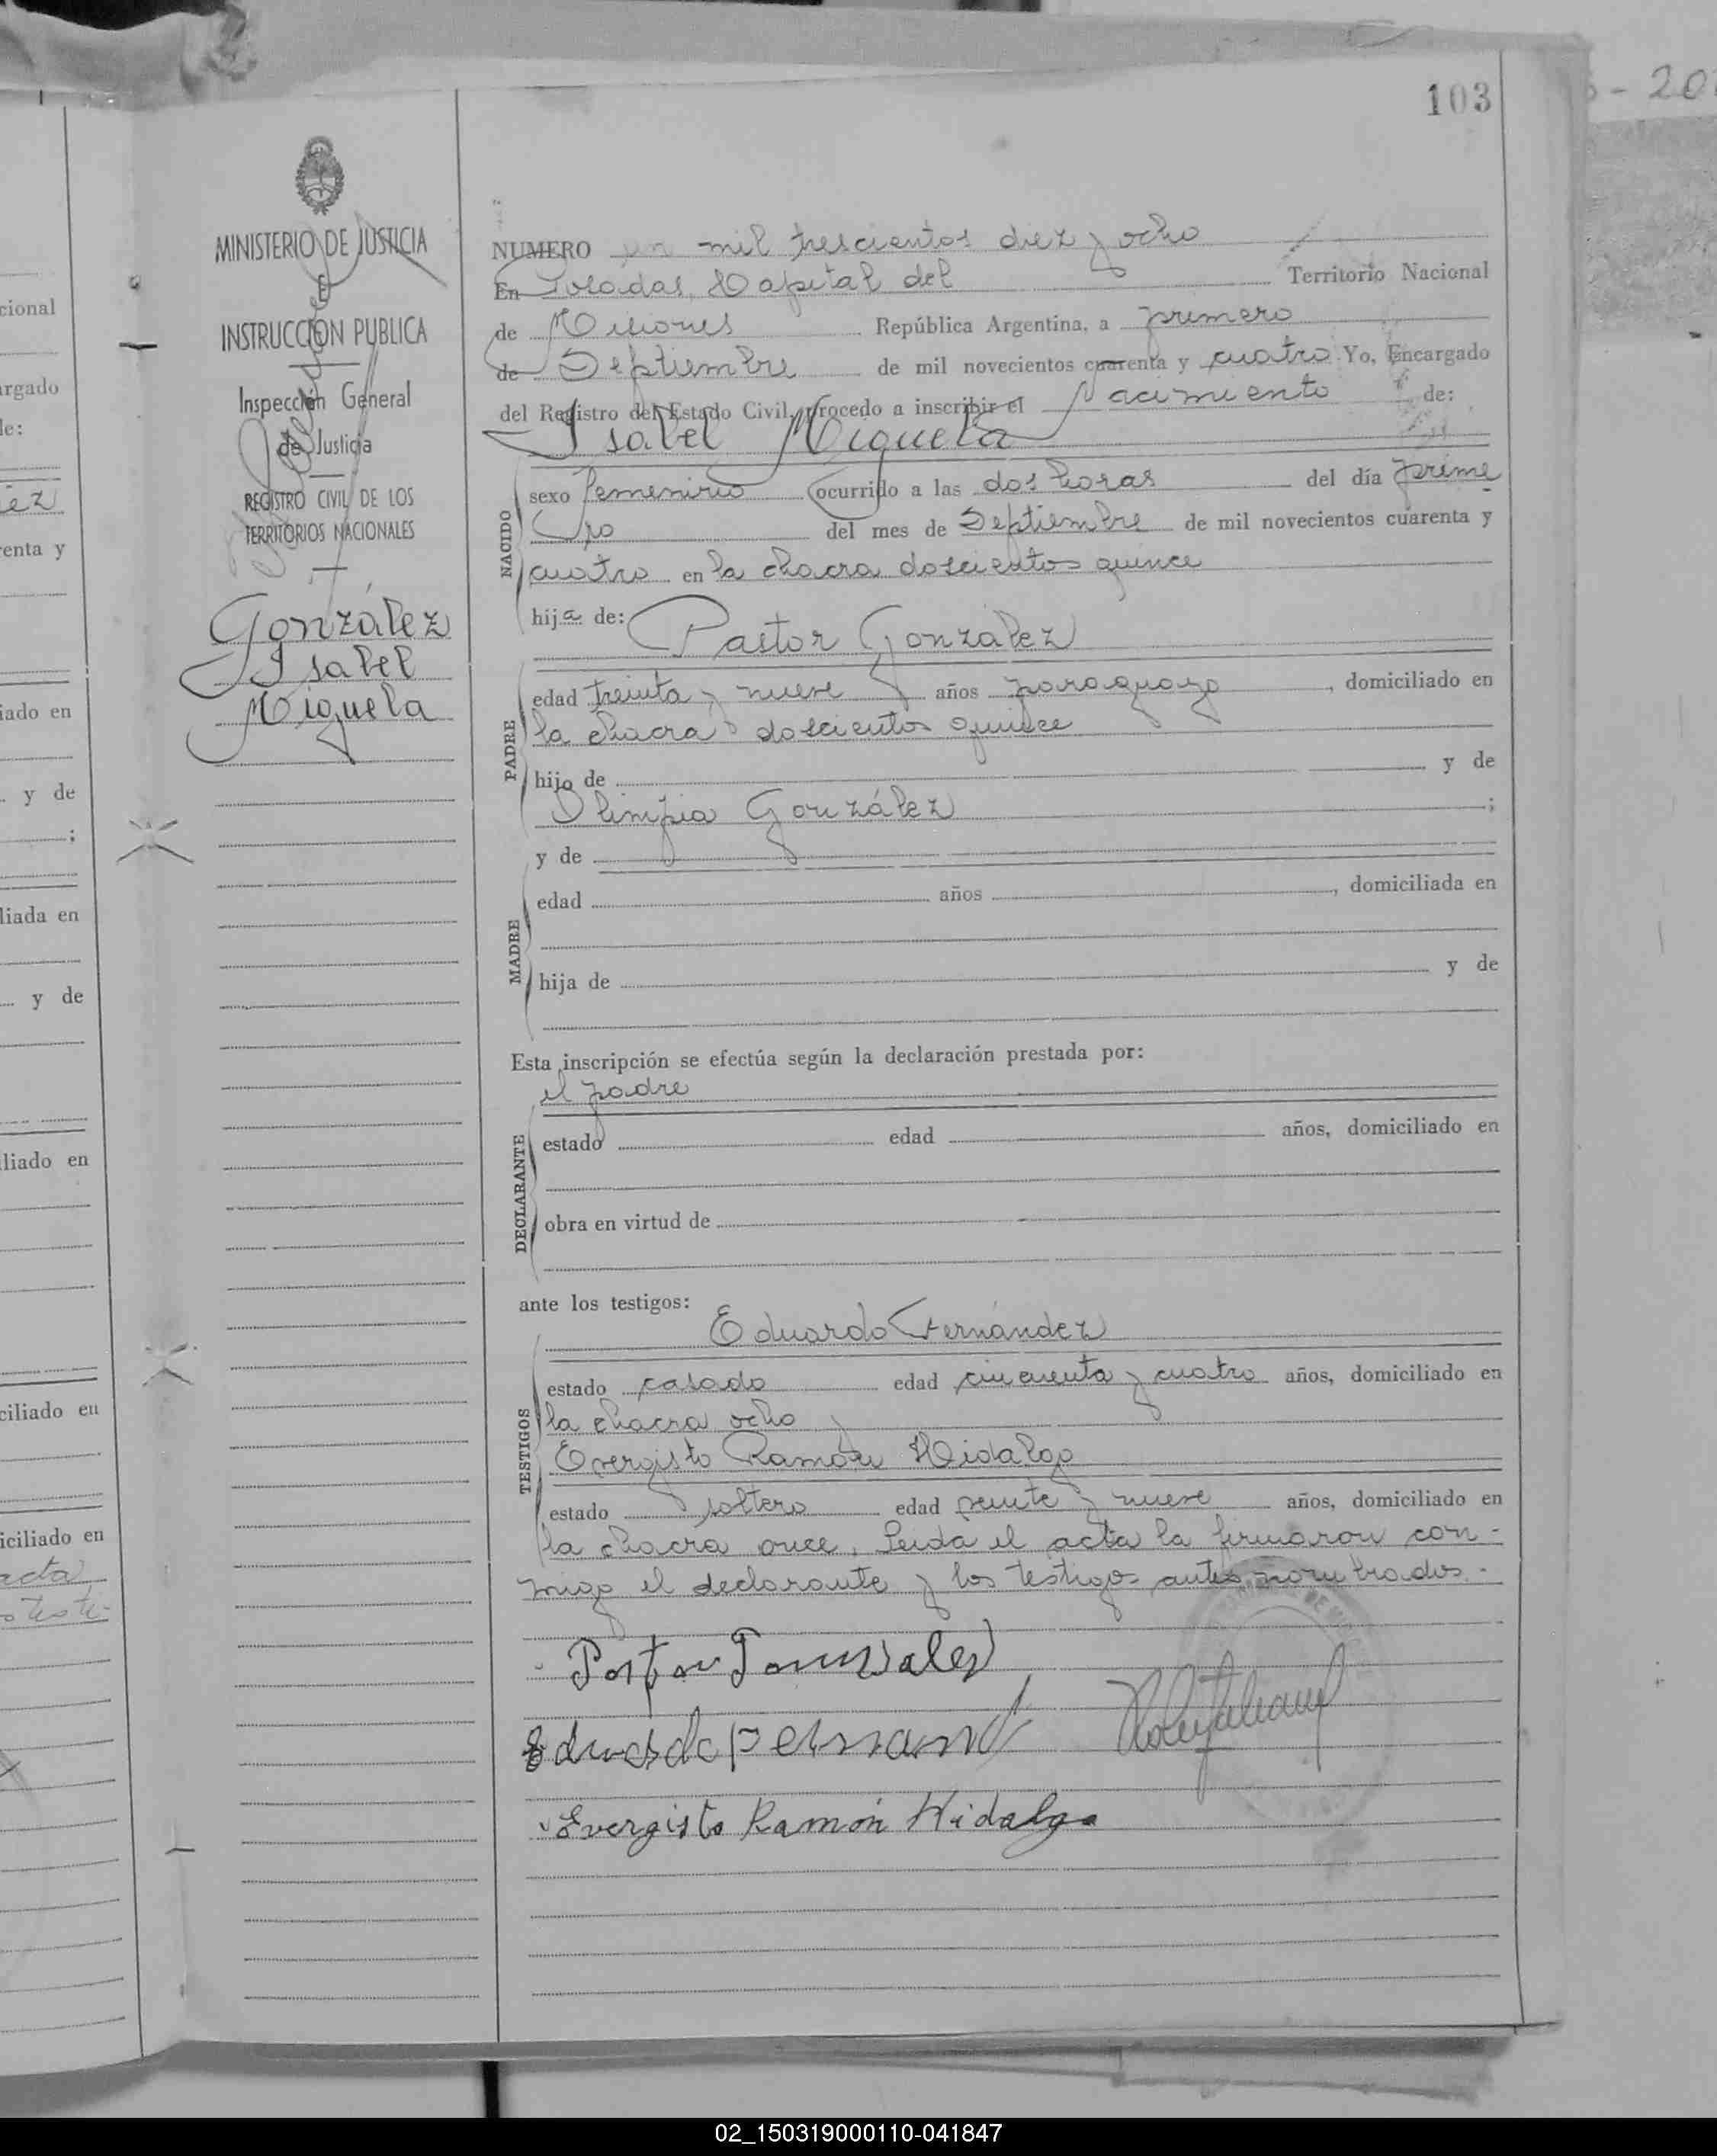 103
MINISTERIO DE JUSTICIA
E
INSTRUCCION PUBLICA
Inspección General
de Justicia
REGISTRO CIVIL DE LOS
TERRITORIOS NACIONALES
González
Isabel
Miguela
NUMERO un mil trescientos diez y ocho
En Posadas, Capital del Territorio Nacional
de Misiones República Argentina, a primero
de Septiembre de mil novecientos cuarenta y cuatro Yo, Encargado
del Registro del Estado Civil, procedo a inscribir el Nacimiento de:
Isabel Miguela
NACIDO
sexo femenino ocurrido a las dos horas del día prime
ro del mes de Septiembre de mil novecientos cuarenta y
cuatro en la chacra doscientos quince
hija de: Pastor González
PADRE
edad treinta y nueve años paraguayo, domiciliado en
la chacra doscientos quince
hijo de y de
Olimpia González ;
y de
MADRE
edad años , domiciliada en
hija de y de
Esta inscripción se efectúa según la declaración prestada por:
el padre
DECLARANTE
estado edad años, domiciliado en
obra en virtud de
ante los testigos:
Eduardo Fernández
TESTIGOS
estado casado edad cincuenta y cuatro años, domiciliado en
la chacra ocho y
Evergisto Ramón Hidalgo
estado soltero edad veinte y nueve años, domiciliado en
la chacra once. Leida el acta la firmaron con-
migo el declarante y los testigos antes nombrados.-
Pastor Gonzalez
Eduardo Fernand
Evergisto Ramón Hidalgo
cional
argado
de:
ez
renta y
iado en
y de
;
liada en
y de
liado en
ciliado en
iciliado en
acta
02_150319000110-041847